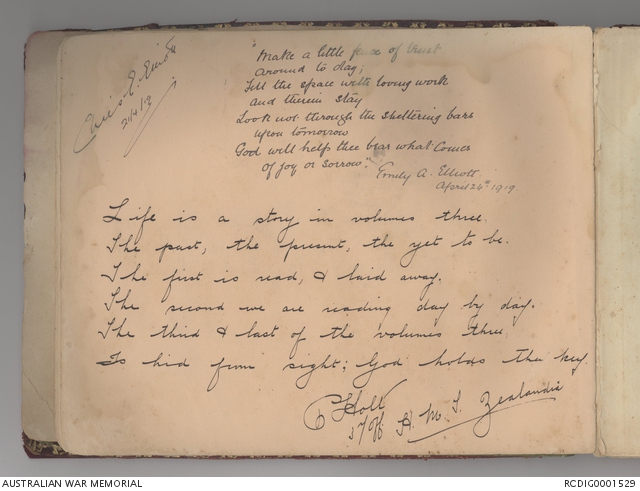 "Make a little fence of trust
around to day;
Fill the space with loving work
and therein stay
Look not through the sheltering bars
upon tomorrow
God will help thee bear what comes
of joy or sorrow."
Emily A. Elliott.
April 26th 1919.
21/4/19
Life is a story in volumes three.
The past, the present, the yet to be.
The first is read, & laid away.
The second we are reading day by day.
The third & last of the volumes three
Is hid from sight; God holds the key.
Holt
H. M. S. Zealandia
AUSTRALIAN WAR MEMORIAL
RCDIG0001529